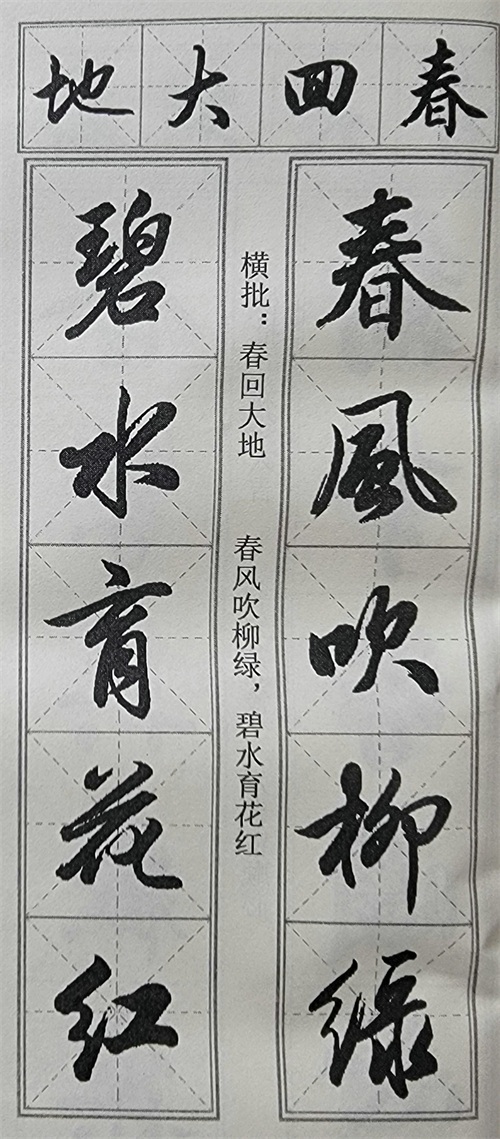 春回大地
春風吹柳緑
横批：春回大地
春风吹柳绿，碧水育花红
碧水育花红